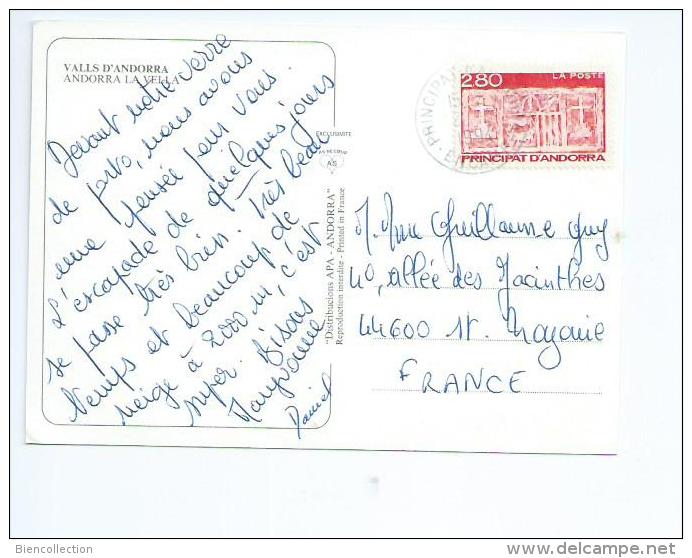 VALLS D'ANDORRA
ANDORRA LA VELLA
Devant notre verre
de porto, nous avons
une pensée pour vous.
L'escapade de quelques jours
se passe très bien. Très beau
temps et beaucoup de
neige à 2000 m, c'est
super. Bisous
Maryvonne
Daniel
EXCLUSIVITE
AS
"Distribucions APA - ANDORRA"
Reproduction interdite - Printed in France
2,80
LA POSTE
PRINCIPAT D'ANDORRA
M. Mme Guillaume Guy
40, allée des Jacinthes
44600 St. Nazaire
FRANCE
Biencollection
www.delcampe.net